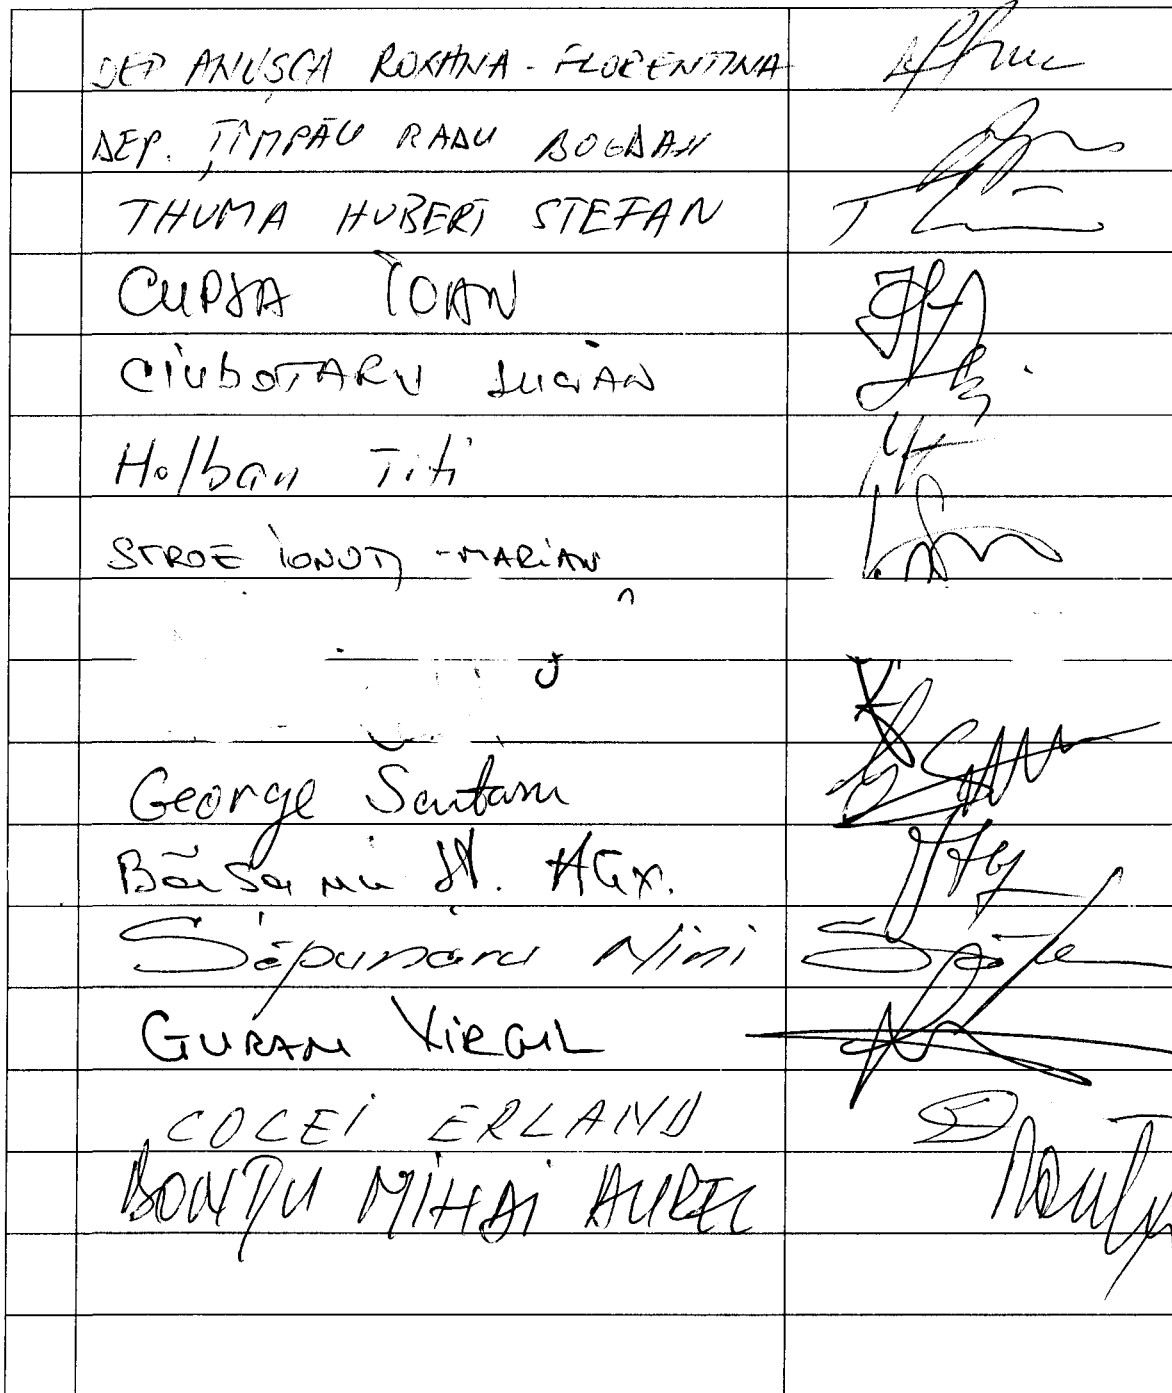 DEP ANUȘCA ROXANA-FLORENTINA
DEP. ȚÎMPĂU RADU BOGDAN
THUMA HUBERT STEFAN
CUPȘA IOAN
CIUBOTARU LUCIAN
Holban Titi
STROE IONUȚ-MARIAN
George Șcutaru
Băișanu Șt. Alex.
Săpunaru Nini
GURAN VIRGIL
COCEI ERLAND
BONTZU MIHAI AUREL